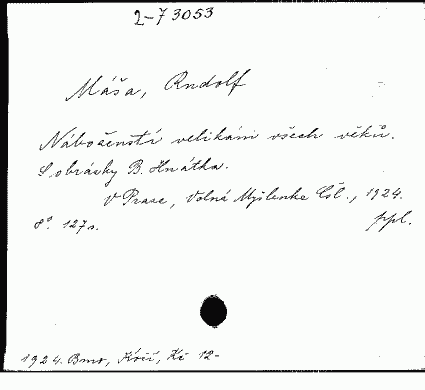 2-73053
Máša, Rudolf
Náboženství velikánů všech věků.
S obrázky B. Hnátka.
V Praze, Volná Myšlenka Čsl., 1924.
8°. 127 s. ppl.
1924. Brno, Kočí, Kč 12-